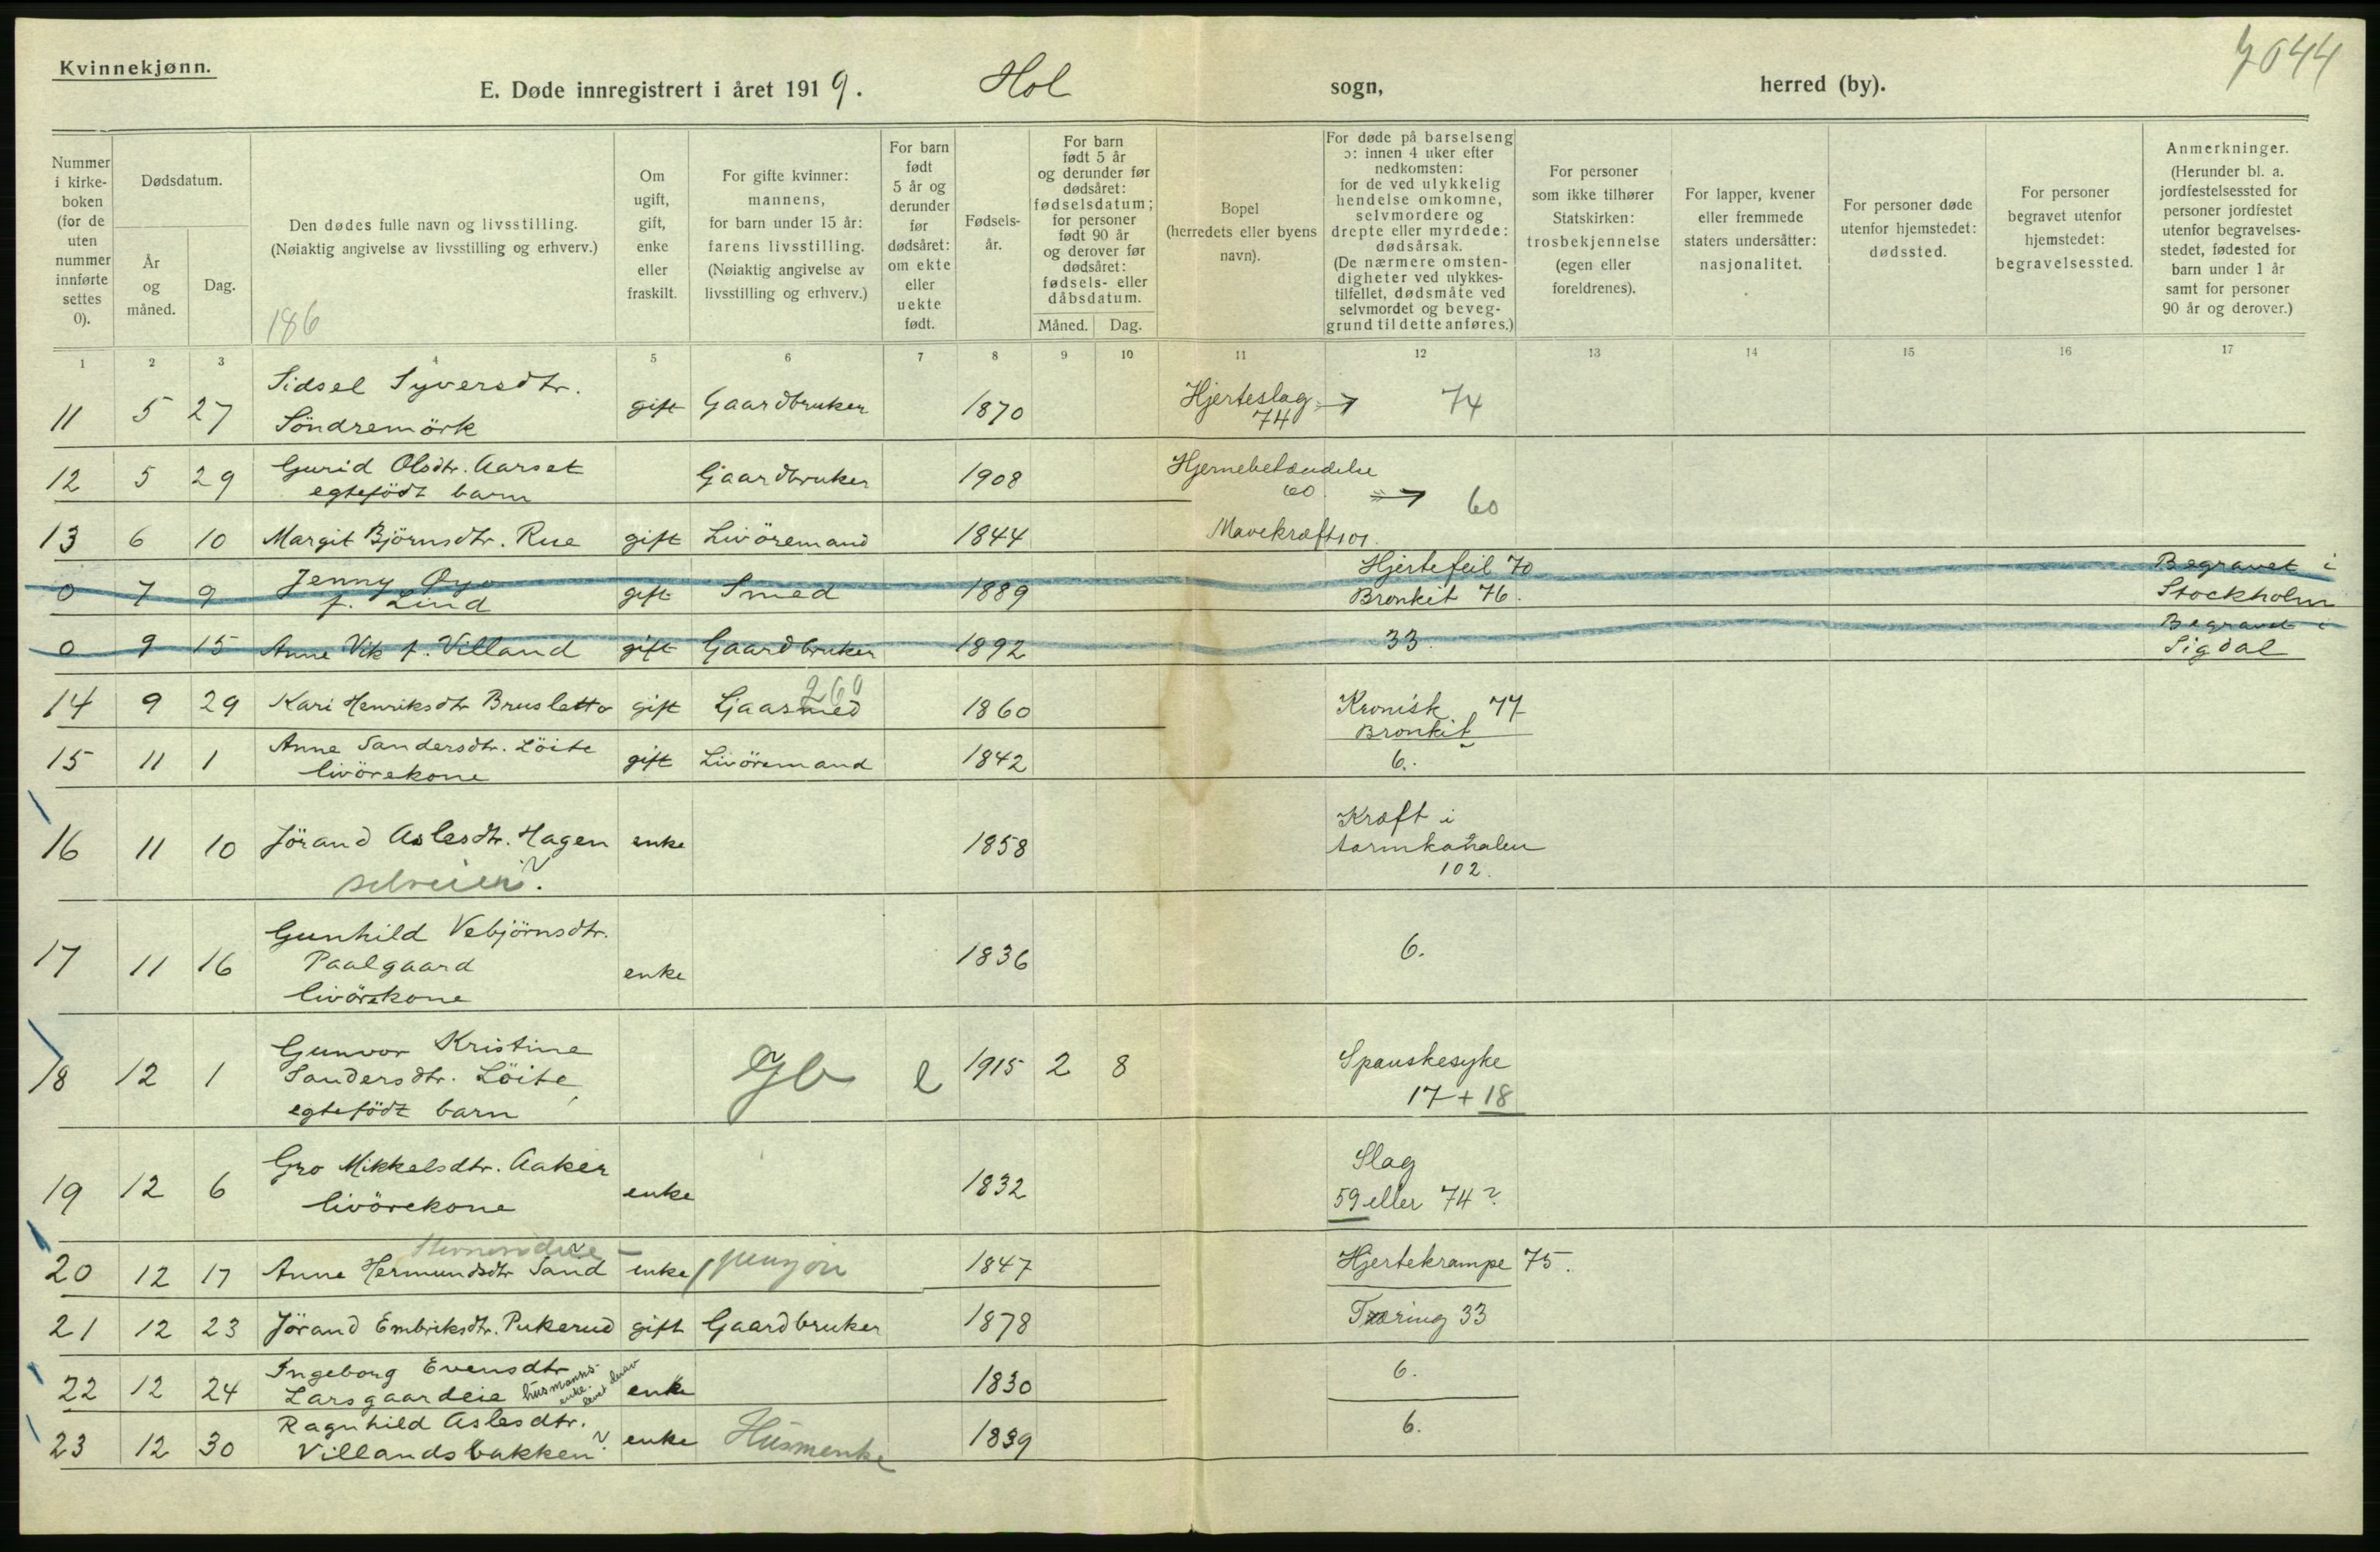 Kvinnekjønn.
7044
E. Døde innregistrert i året 1919. Hol sogn, herred (by).
Nummer i kirkeboken (for de uten nummer innførte settes 0).
Dødsdatum.
År og måned.
Dag.
Den dødes fulle navn og livsstilling.
(Nøiaktig angivelse av livsstilling og erhverv.)
186
Om ugift, gift, enke eller fraskilt.
For gifte kvinner: mannens, for barn under 15 år: farens livsstilling. (Nøiaktig angivelse av livsstilling og erhverv.)
For barn født 5 år og derunder før dødsåret: om ekte eller uekte født.
Fødselsår.
For barn født 5 år og derunder før dødsåret: fødselsdatum; for personer født 90 år og derover før dødsåret: fødsels- eller dåbsdatum.
Måned. Dag.
Bopel (herredets eller byens navn).
For døde på barselseng ɔ: innen 4 uker efter nedkomsten: for de ved ulykkelig hendelse omkomne, selvmordere og drepte eller myrdede: dødsårsak. (De nærmere omstendigheter ved ulykkestilfellet, dødsmåte ved selvmordet og beveggrund til dette anføres.)
For personer som ikke tilhører Statskirken: trosbekjennelse (egen eller foreldrenes).
For lapper, kvener eller fremmede staters undersåtter: nasjonalitet.
For personer døde utenfor hjemstedet: dødssted.
For personer begravet utenfor hjemstedet: begravelsessted.
Anmerkninger. (Herunder bl. a. jordfestelsessted for personer jordfestet utenfor begravelsesstedet, fødested for barn under 1 år samt for personer 90 år og derover.)
1 2 3 4 5 6 7 8 9 10 11 12 13 14 15 16 17
11 5 27 Sidsel Syversdtr. Söndremörk gift Gaardbruker 1870 Hjerteslag 74 → 74
12 5 29 Gurid Olsdtr. Aarset egtefödt barn Gaardbruker 1908 Hjernebetændelse 60 → 60
13 6 10 Margit Björnsdtr. Rue gift Livöremand 1844 Mavekræft 101.
0 7 9 Jenny Øyo f. Lind gift Smed 1889 Hjertefeil 70 Bronkit 76. Begravet i Stockholm
0 9 15 Anne Vik f. Villand gift Gaardbruker 1892 33. Begravet i Sigdal
14 9 29 Kari Henriksdtr Brusletto gift 260 1860 Kronisk 77 Bronkit
15 11 1 Anne Sandersdtr. Löite livörekone gift Livöremand 1842 6.
16 11 10 Jörand Aslesdtr. Hagen selveier? enke 1858 Kræft i tarmkanalen 102.
17 11 16 Gunhild Vebjörnsdtr. Paalgaard livörekone enke 1836 6.
18 12 1 Gunvor Kristine Sandersdtr. Löite, egtefödt barn Gb e 1915 2 8 Spanskesyke 17 + 18
19 12 6 Gro Mikkelsdtr. Aaker livörekone enke 1832 Slag 59 eller 74?
20 12 17 Anne Hermundsdtr Sand enke 1847 Hjertekrampe 75.
21 12 23 Jörand Embriksdtr. Pukerud gift Gaardbruker 1878 Tæring 33
22 12 24 Ingeborg Evensdtr Larsgaardeie husmanns-enke. levet derav enke 1830 6.
23 12 30 Ragnhild Aslesdtr. Villandsbakken? enke Husmenke 1839 6.